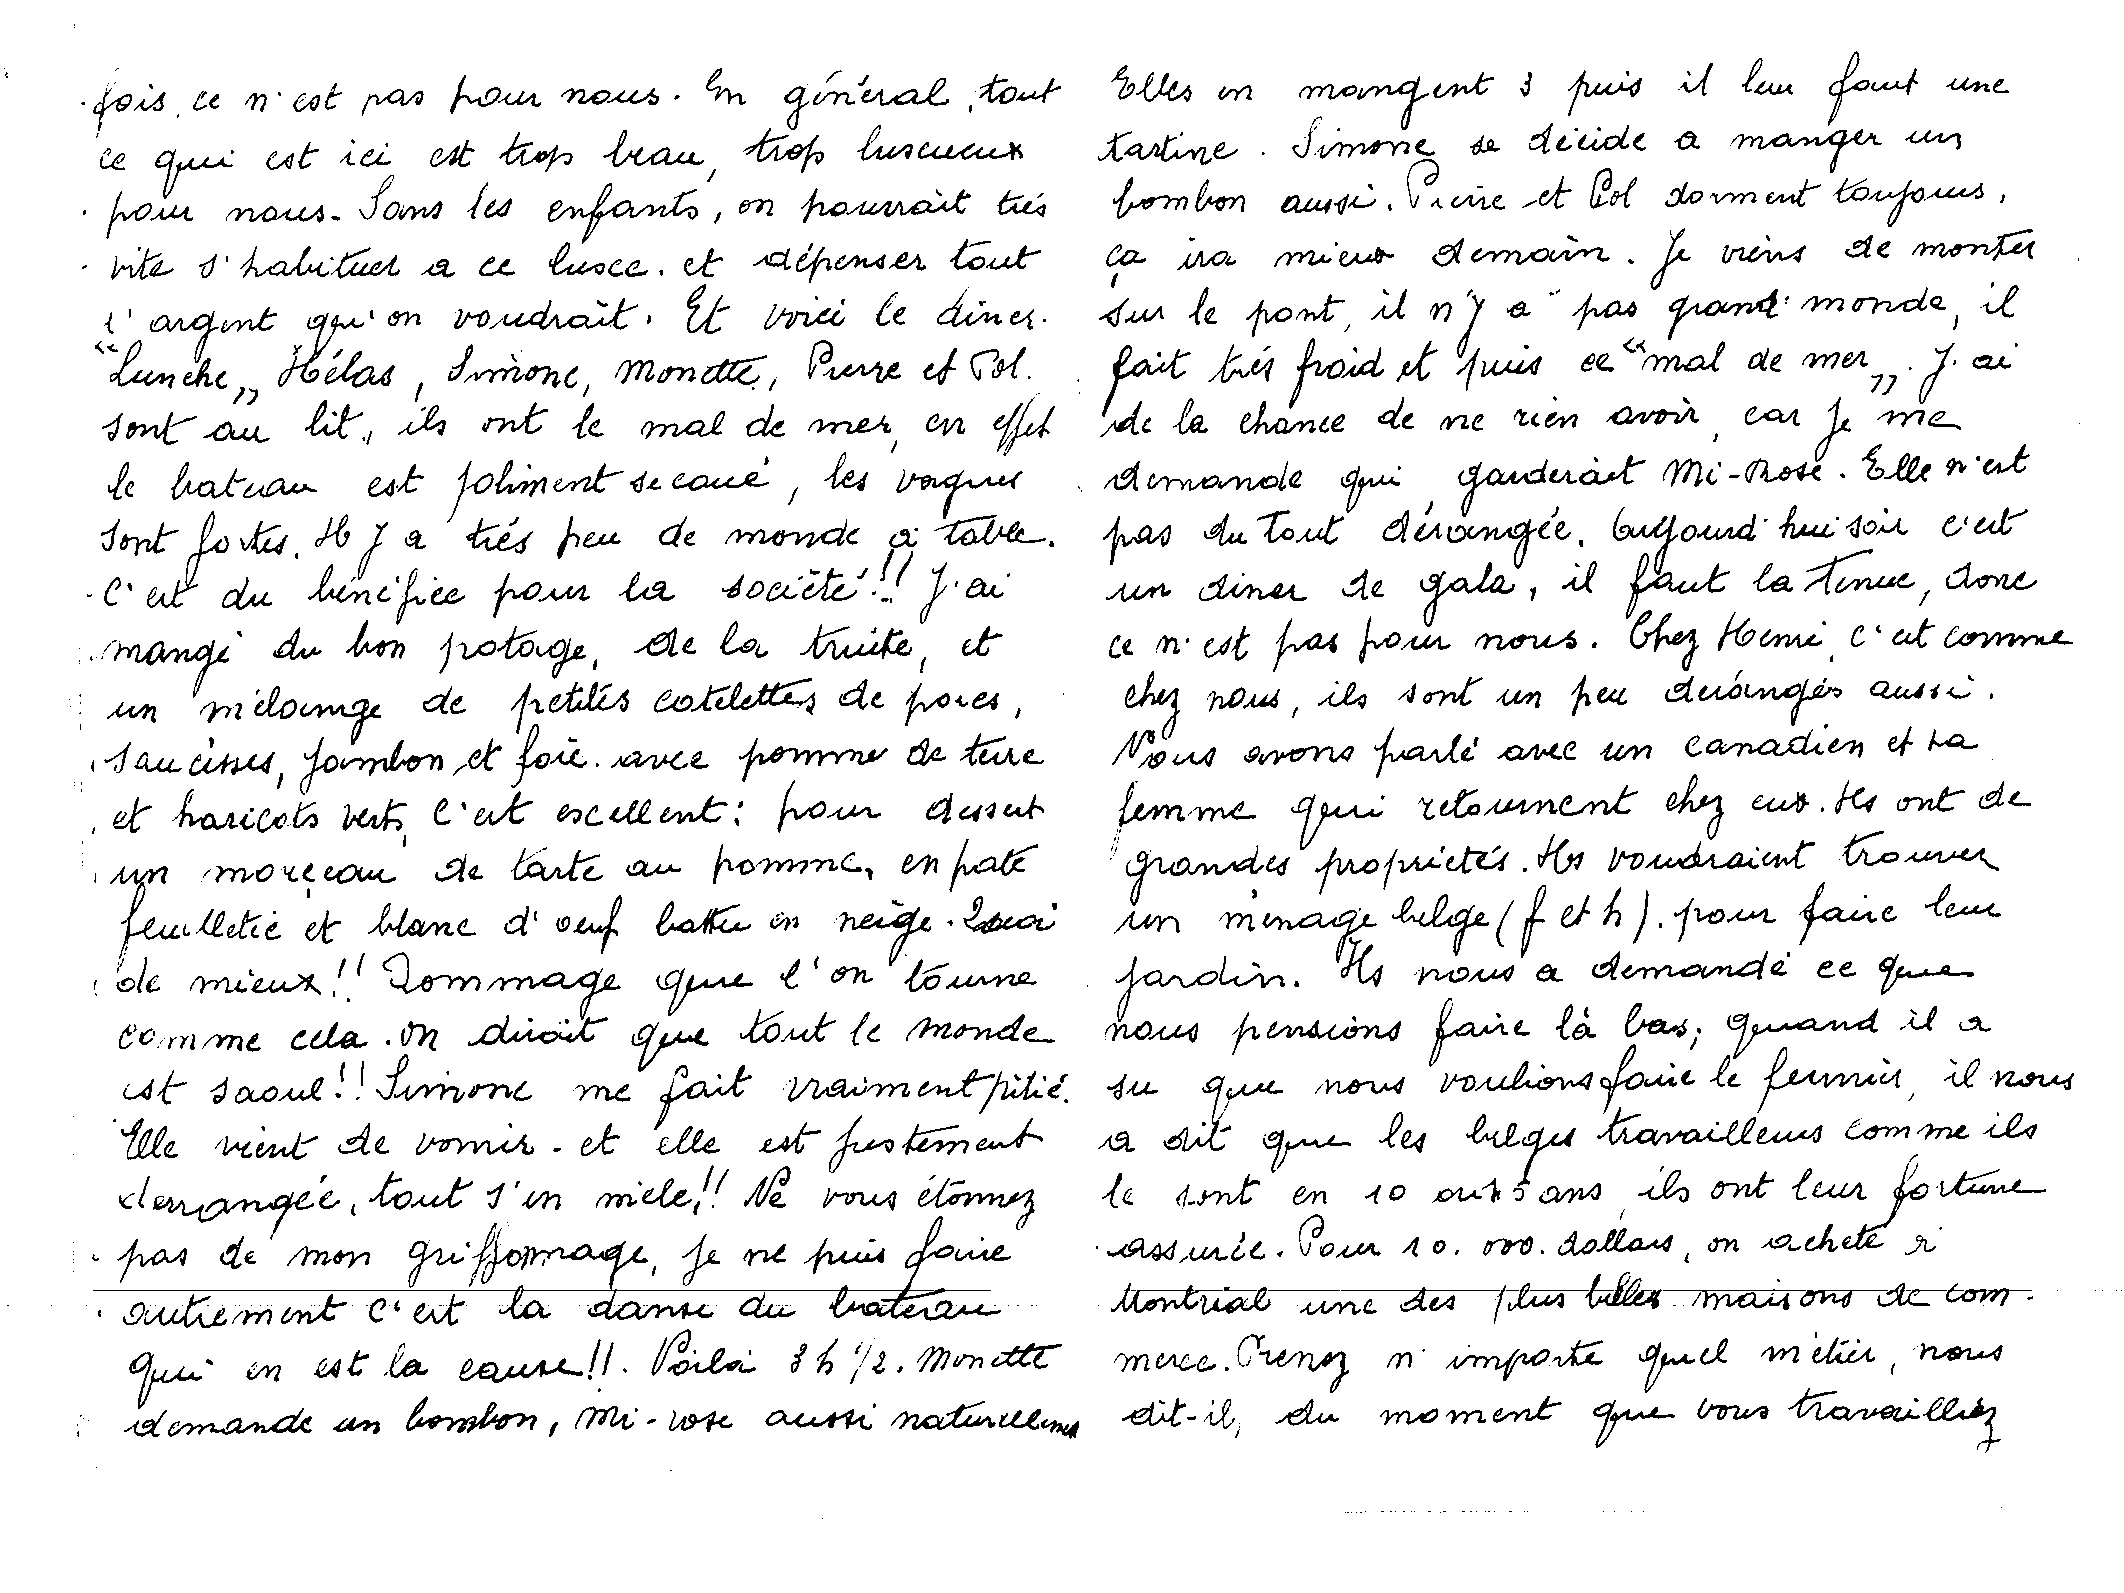 fois, ce n'est pas pour nous. En général, tout
ce qui est ici est trop beau, trop luscueux
pour nous. Sans les enfants, on pourrait trés
vite s'habituer a ce lusce. et dépenser tout
l'argent qu'on voudrait. Et voici le diner.
"Lunche" Hélas, Simone, Monette, Pierre et Pol.
sont au lit, ils ont le mal de mer, en effet
le bateau est joliment secoué, les vagues
sont fortes. Il y a trés peu de monde a table.
C'est du bénéfice pour la société!! J'ai
mangé du bon potage, de la truite, et
un mélange de petites cotelettes de porcs,
saucisses, jambon et foie. avec pomme de terre
et haricots verts, c'est escellent: pour dessert
un morçeau de tarte au pomme, en pate
feuilletée et blanc d'oeuf battu en neige. Quoi
de mieux!! Dommage que l'on tourne
comme cela. on dirait que tout le monde
est saoul!! Simone me fait vraiment pitié.
Elle vient de vomir. et elle est justement
derrangée, tout s'en mèle!! Ne vous étonnez
pas de mon griffonnage, je ne puis faire
autrement c'est la danse du bateau
qui en est la cause!!. Voilà 3 h 1/2. Monette
demande un bonbon, Mi-rose aussi naturellement
Elles en mangent 3 puis il leur faut une
tartine. Simone se décide a manger un
bombon aussi. Pierre et Pol dorment toujours,
ça ira mieux demain. Je viens de monter
sur le pont, il n'y a pas grand monde, il
fait trés froid et puis ce "mal de mer". J'ai
de la chance de ne rien avoir, car je me
demande qui garderait Mi-Rose. Elle n'est
pas du tout dérangée. Aujourd'hui soir c'est
un diner de gala, il faut la tenue, donc
ce n'est pas pour nous. Chez Henri, c'est comme
chez nous, ils sont un peu derangés aussi.
Nous avons parlé avec un canadien et sa
femme qui retournent chez eux. Ils ont de
grandes propriétés. Ils voudraient trouver
un ménage belge (f et h). pour faire leur
jardin. Ils nous a demandé ce que
nous pensions faire là bas; quand il a
su que nous voulions faire le fermier, il nous
a dit que les belges travailleurs comme ils
le sont en 10 ou 15 ans, ils ont leur fortune
assurée. Pour 10.000. dollars, on achete à
Montréal une des plus belles maisons de com-
merce. Prenez n'importe quel métier, nous
dit-il, du moment que vous travailliez